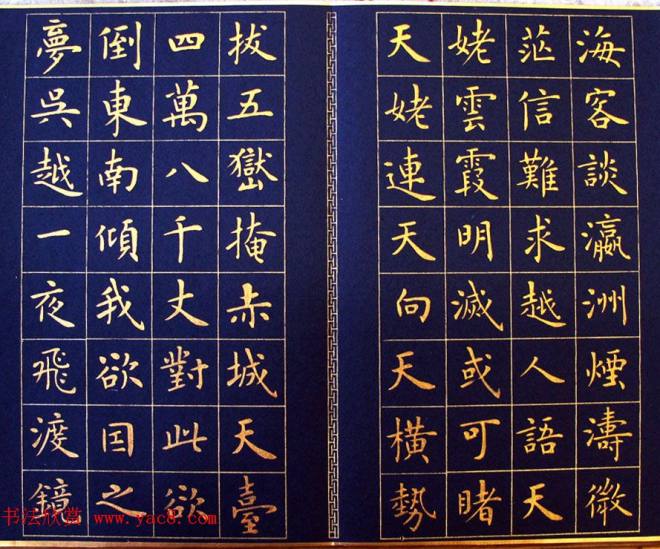 海客談瀛洲煙濤微
茫信難求越人語天
姥雲霞明滅或可睹
天姥連天向天橫勢
拔五嶽掩赤城天臺
四萬八千丈對此欲
倒東南傾我欲因之
夢吳越一夜飛渡鏡
书法欣赏 www.yac8.com